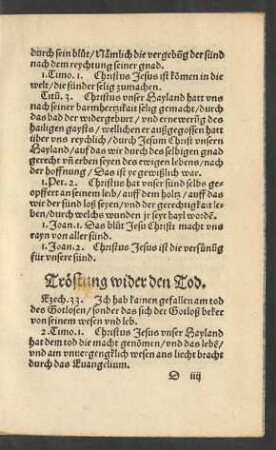 durch sein blůt/Nämlich die vergebũg der sünd
nach dem reychtung seiner gnad.
1.Timo.1. Christus Jesus ist kõmen in die
welt/die sünder selig zumachen.
Titũ.3. Christus vnser Hayland hatt vns
nach seiner barmhertzikait selig gemacht/durch
das bad der widergeburt/vnd ernewerũg des
hailigen gaysts/wellichen er außgegossen hatt
über vns reychlich/durch Jesum Christ vnsern
Hayland/auff das wir durch des selbigen gnad
gerecht vñ erben seyen des ewigen lebens/nach
der hoffnung/Das ist ye gewißlich war.
1.Pet.2. Christus hat vnser sünd selbs ge-
opffert an seinem leib/auff dem holtz/auff das
wir der sünd loß seyen/vnd der gerechtigkait le-
ben/durch welchs wunden jr seyt hayl wordẽ.
1.Joan.1. Das blůt Jesu Christi macht vns
rayn von aller sünd.
1.Joan.2. Christus Jesus ist die versünũg
für vnsere sünd.
Tröstung wider den Tod.
Ezech.33. Jch hab kainen gefallen am tod
des Gotlosen/sonder das sich der Gotloß beker
von seinem wesen vnd leb.
2.Timo.1. Christus Jesus vnser Hayland
hat dem tod die macht genõmen/vnd das lebẽ/
vnd ain vnuergengklich wesen ans liecht bracht
durch das Euangelium.
D iiij